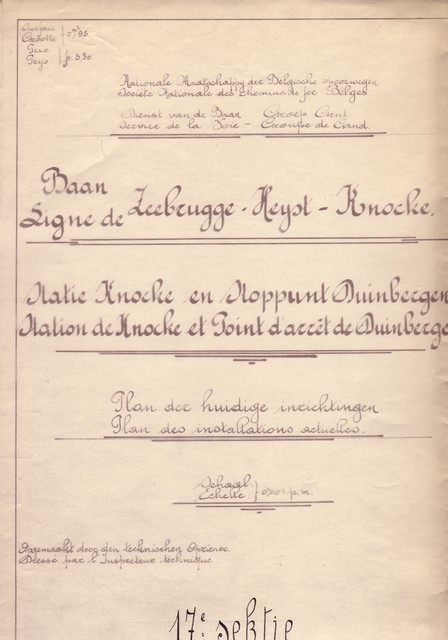 Surface
Grootte } 0m²95
Prix
Prys } fr 5.50
Nationale Maatschappij der Belgische Spoorwegen
Société Nationale des Chemins de fer Belges
Dienst van de Baan Groep Gent
Service de la Voie - Groupe de Gand
Baan
Ligne de Zeebrugge - Heyst - Knocke.
Statie Knocke en Stoppunt Duinbergen
Station de Knocke et Point d'arrêt de Duinberge
Plan der huidige inrichtingen
Plan des installations actuelles.
Schaal
Echelle } 0,001 p.m.
Opgemaakt door den technischen Opziener
Dressé par l'Inspecteur technique
17e sektie